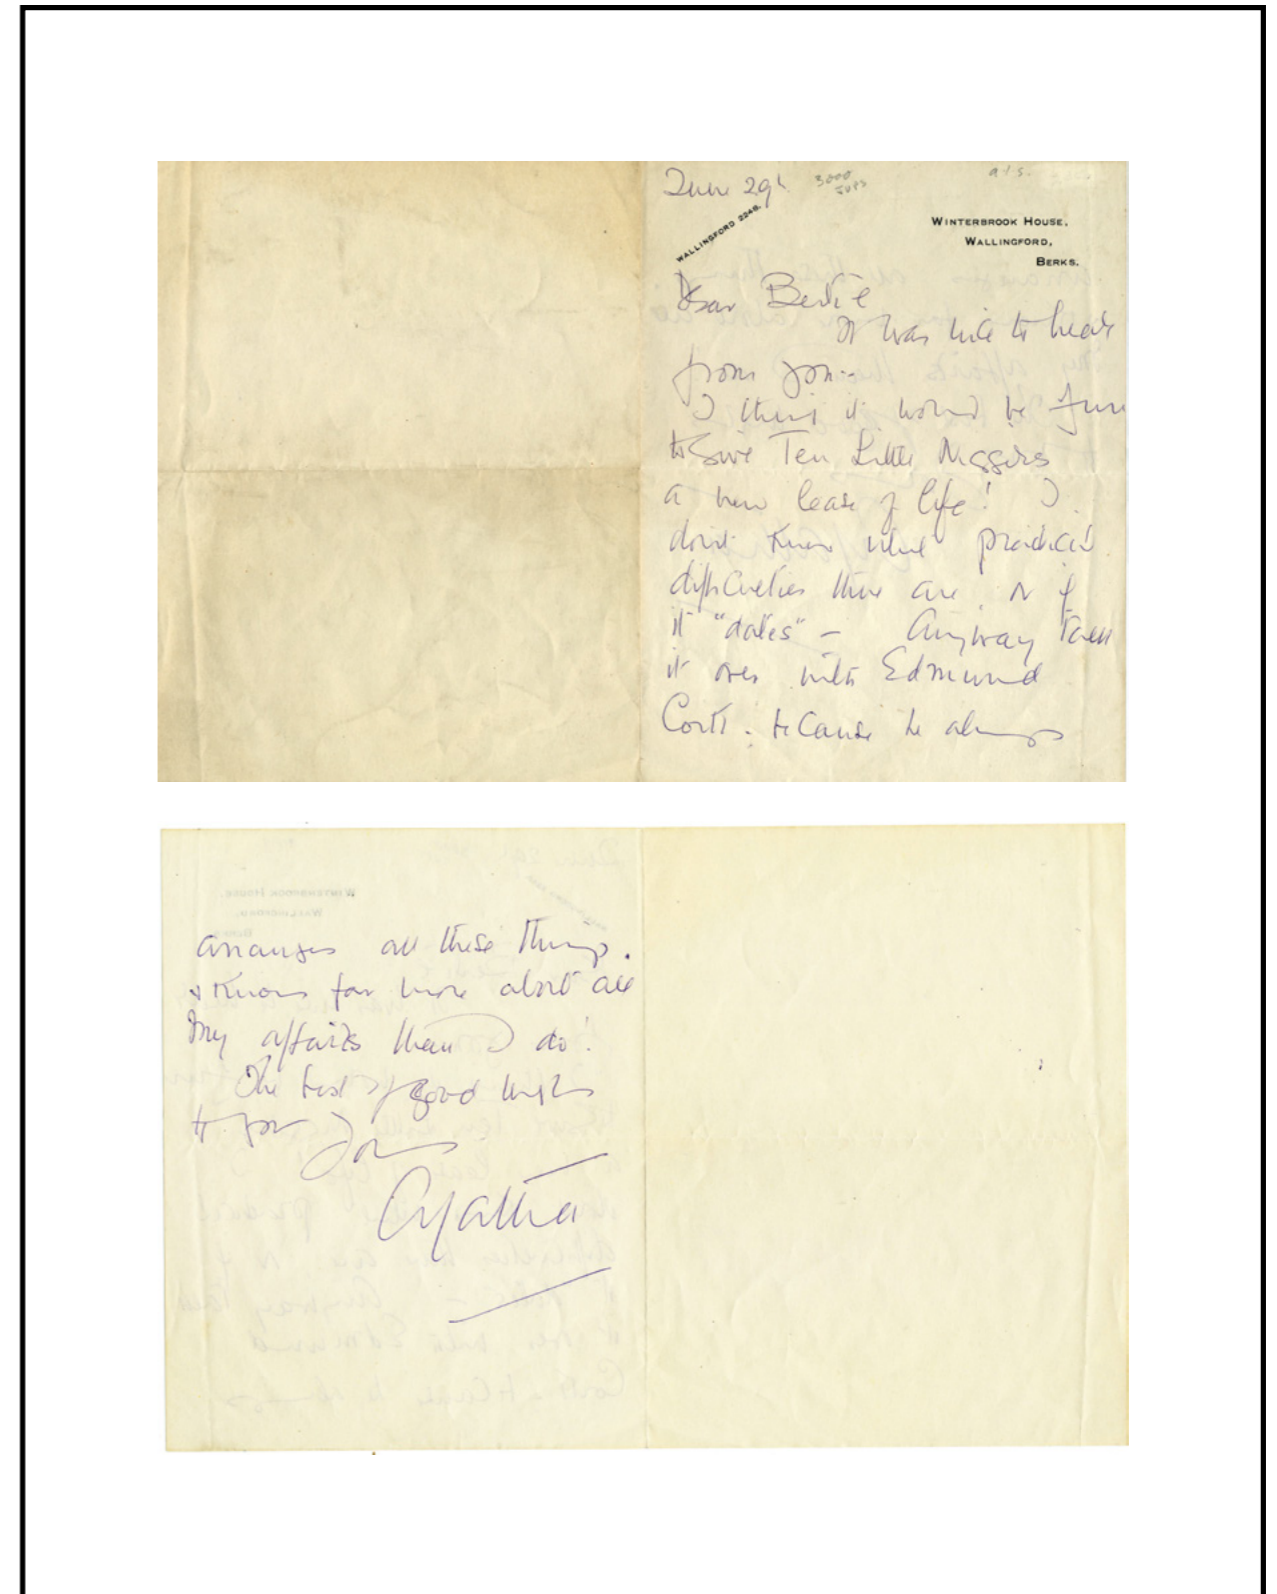 June 29th
3000
a.l.s.
WALLINGFORD 2248.
WINTERBROOK HOUSE,
WALLINGFORD,
BERKS.
Dear Bertie
It was nice to hear
from you—
I think it would be fun
to give Ten Little Niggers
a new lease of life! I
don't know what practical
difficulties there are, or if
it "dates" — Anyway talk
it over with Edmund
Cork. because he always
arranges all these things.
& knows far more about all
my affairs than I do!
The best of good wishes
to you
Yours
Agatha